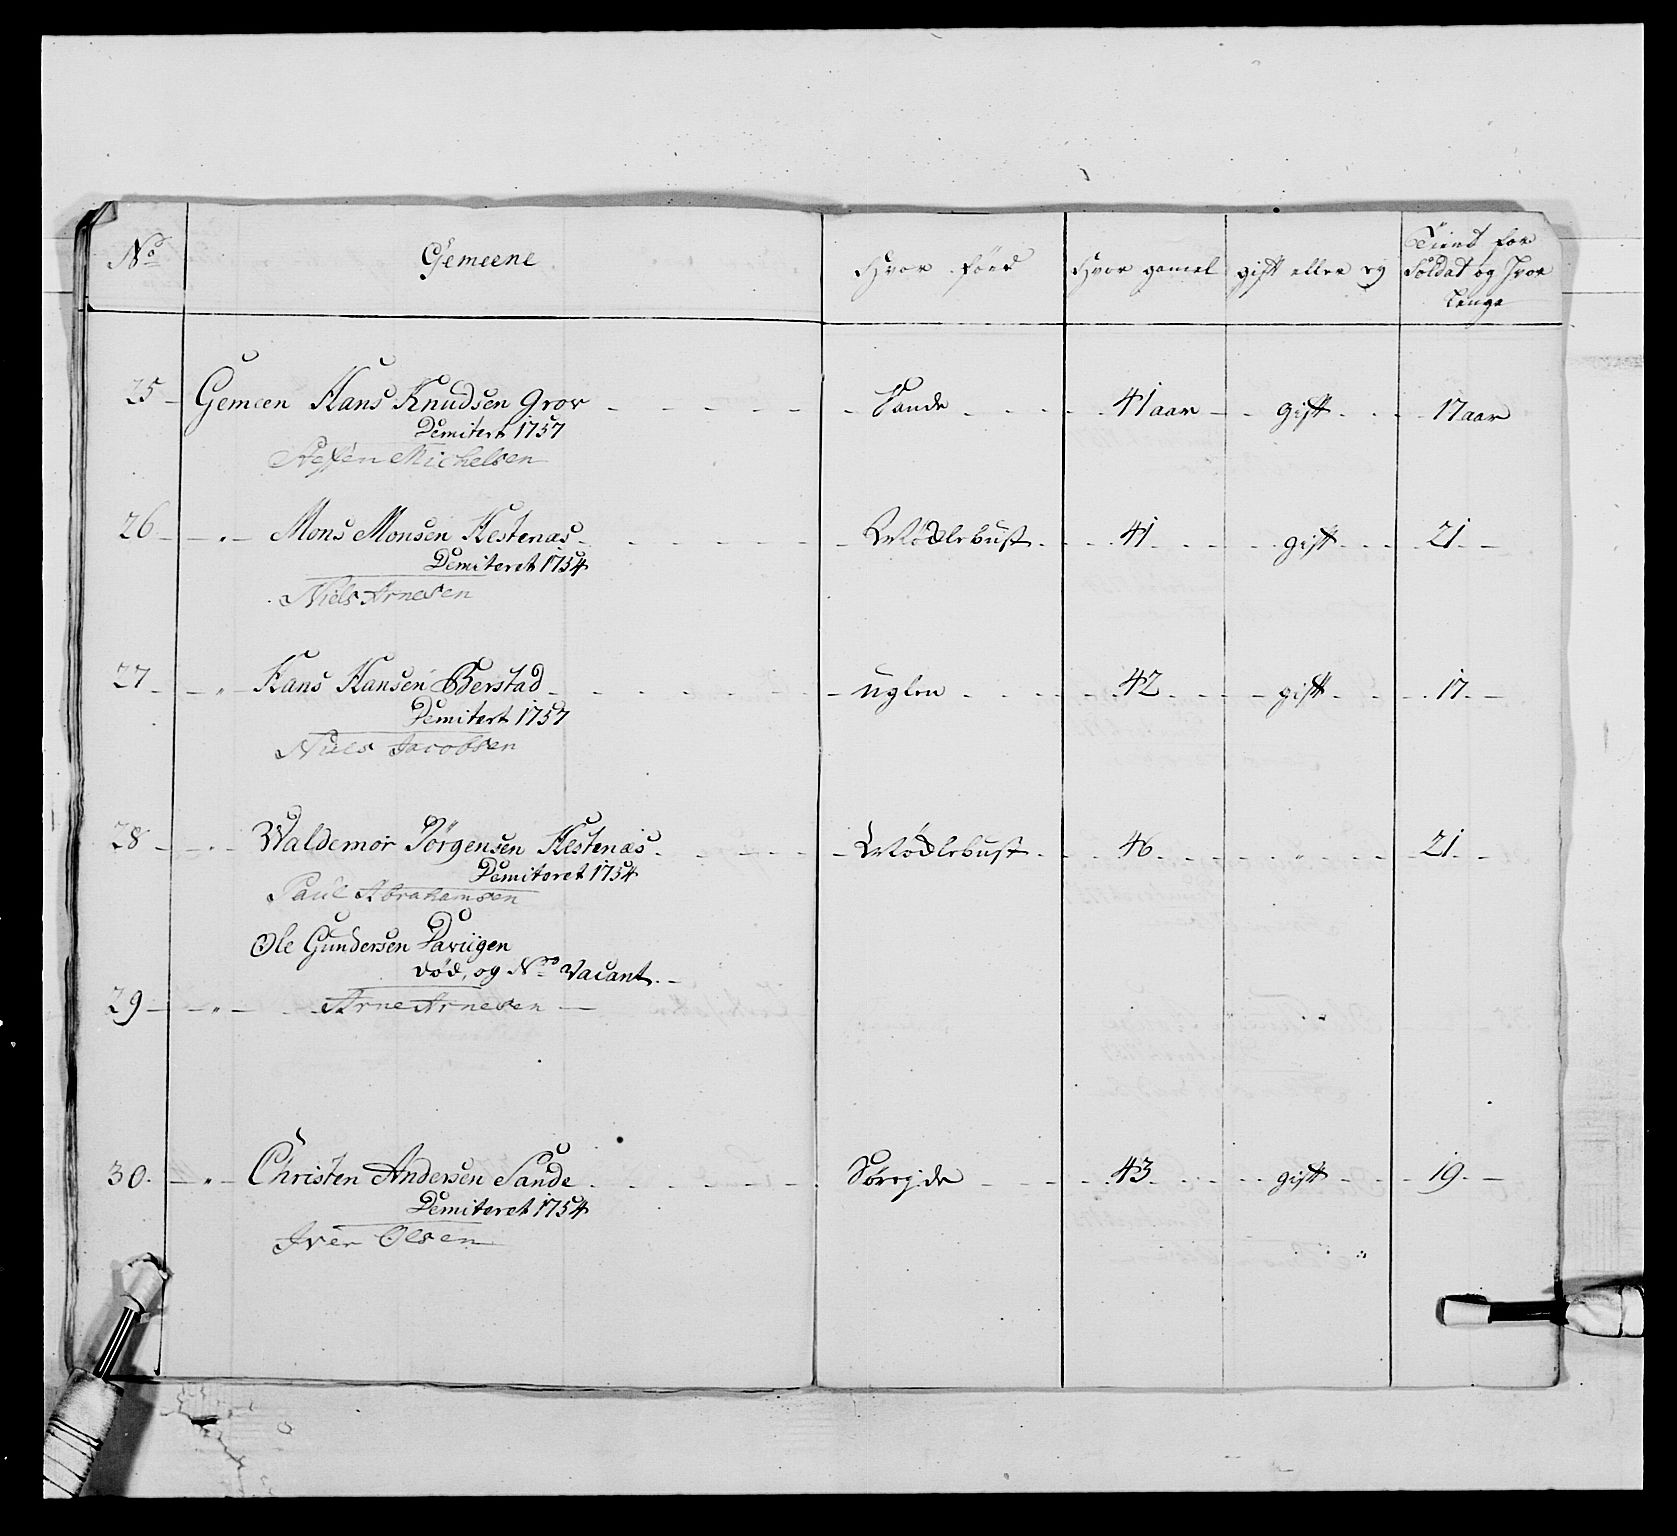 No Gemeene Hvor föed Hvor gamel gift eller ey Tient for Soldat og Hvor Lenge
25 Gemeen Hans Knudsen Grov Sande 41 aar gift 17 aar
Demitert 1757
Steffen Michelsen
26 " Mons Monsen Hestenæs Mödlebust 41 gift 21
Demiteret 1754
Niels Arnesen
27 " Hans Hansen Berstad Uglen 42 gift 17
Demitert 1757
Niels Jacobsen
28 " Waldemor Jörgensen Hestenæs Mödlebust 46 " 21
Demiteret 1754
Paul Abrahamsen
Ole Gundersen
död, og No Vacant
29 " Arne Arnesen
30 " Christen Andersen Sande 43 gift 19
Demiteret 1754
Iver Olsen